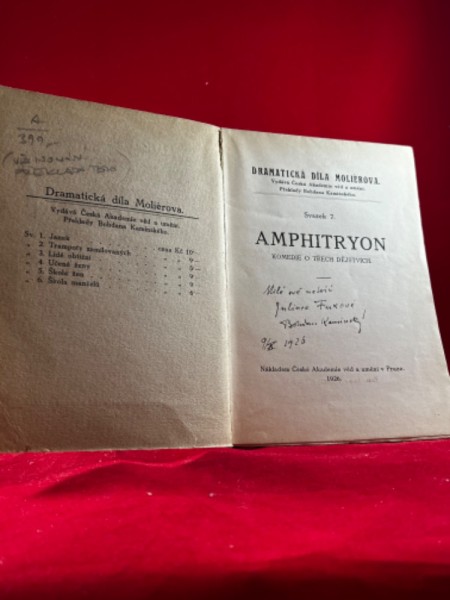 A
399,-
(VĚNOVÁNÍ
PŘEKLADATELE)
Dramatická díla Molièrova.
Vydává Česká Akademie věd a umění.
Překlady Bohdana Kaminského.
Sv. 1. Ježek
cena Kč 10—
„ 2. Trampoty zamilovaných „ „ 9—
„ 3. Lidé obtížní „ „ 9—
„ 4. Učené ženy „ „ 9—
„ 5. Škola žen „ „ 9—
„ 6. Škola manželů „ „ 9—
DRAMATICKÁ DÍLA MOLIÈROVA.
Vydává Česká Akademie věd a umění.
Překlady Bohdana Kaminského.
Svazek 7.
AMPHITRYON
KOMEDIE O TŘECH DĚJSTVÍCH.
Milé
Bohdan Kaminský
1926
Nákladem České Akademie věd a umění v Praze.
1926.